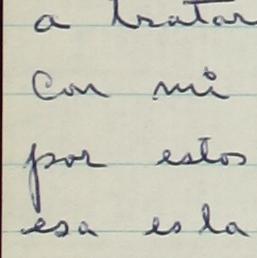 a tratar
con mi
por estos
esa es la